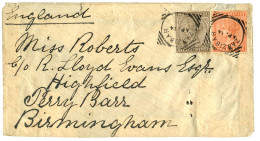 England
Miss Roberts
c/o R. Lloyd Evans Esqr.
Highfield
Perry Barr
Birmingham